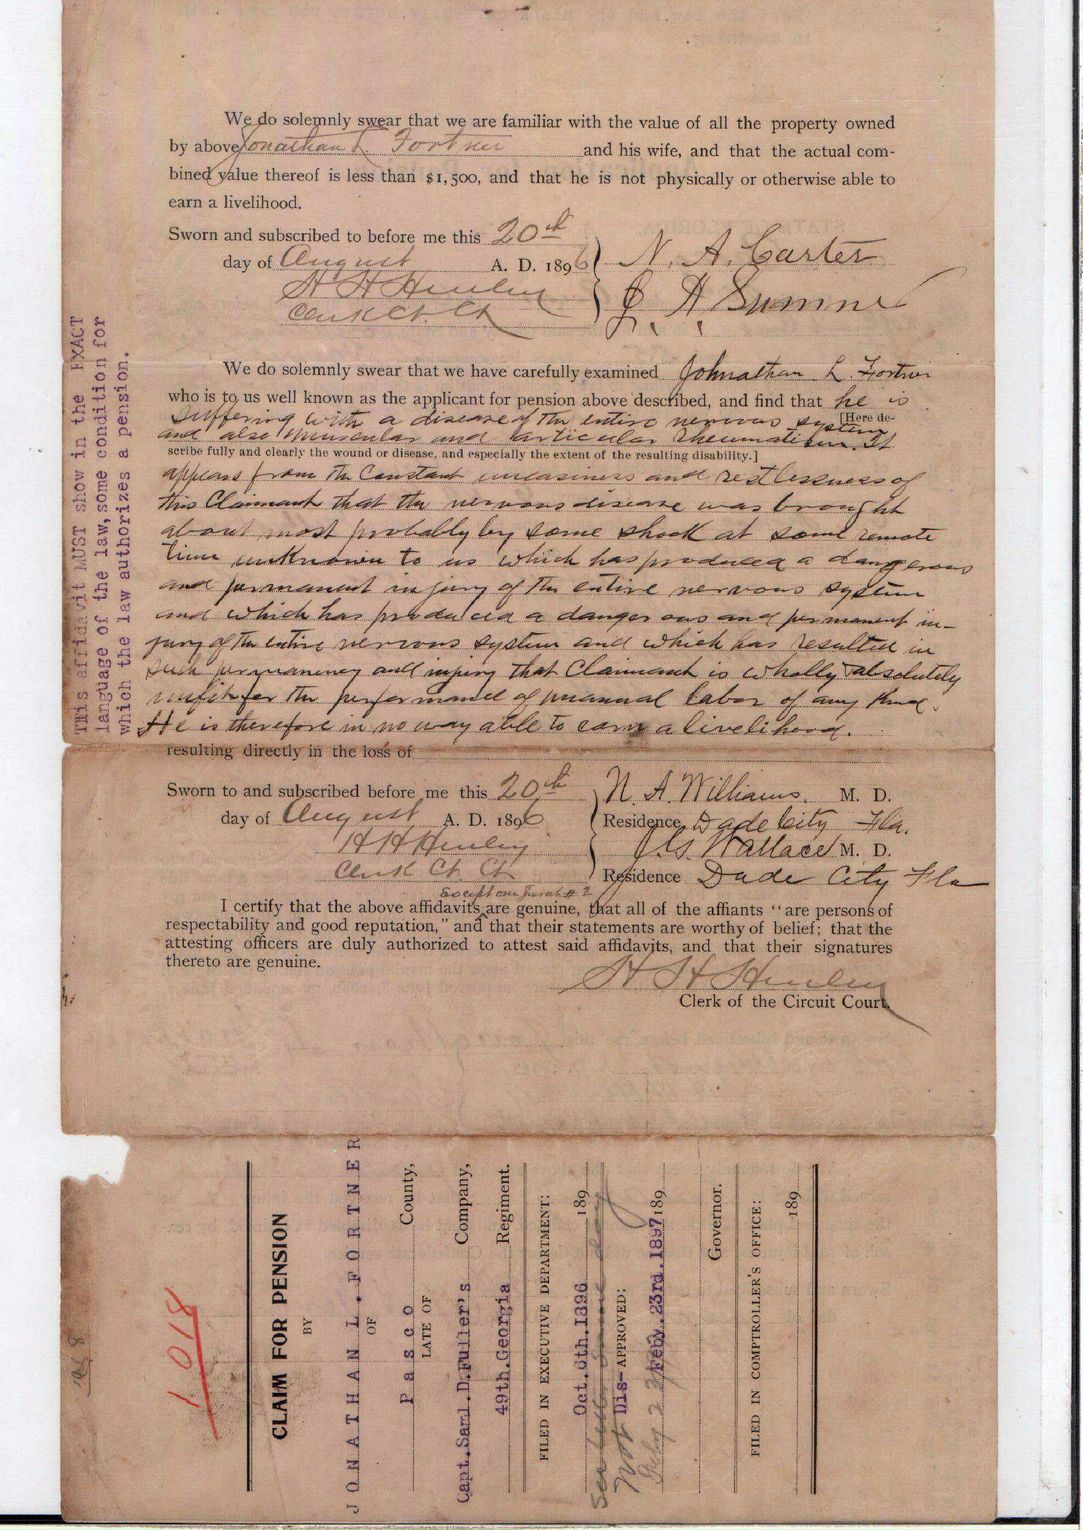 We do solemnly swear that we are familiar with the value of all the property owned
by above Jonathan L Fortner and his wife, and that the actual com-
bined value thereof is less than $1,500, and that he is not physically or otherwise able to
earn a livelihood.
Sworn and subscribed to before me this 20th
day of August A. D. 1896
H H Henley
Clerk Ct. Ct.
N. A. Carter
J. A. Sumner
This affidavit MUST show in the EXACT
language of the law, some condition for
which the law authorizes a pension.
We do solemnly swear that we have carefully examined Johnathan L. Fortner
who is to us well known as the applicant for pension above described, and find that he is
suffering with a disease of the entire nervous system [Here de-
and also muscular and articular Rheumatism. It
scribe fully and clearly the wound or disease, and especially the extent of the resulting disability.]
appears from the Constant uneasiness and restlessness of
this Claimant that the nervous disease was brought
about most probably by some shock at some remote
time unknown to us which has produced a dangerous
and permanent injury of the entire nervous system
and which has produced a dangerous and permanent in-
jury of the entire nervous system and which has resulted in
such permanency and injury that Claimant is wholly & absolutely
unfit for the performance of manual labor of any kind.
He is therefore in no way able to earn a livelihood.
resulting directly in the loss of
Sworn to and subscribed before me this 20th
day of August A. D. 1896
H H Henley
Clerk Ct. Ct.
N. A. Williams. M. D.
Residence Dade City Fla.
J. G. Wallace M. D.
Residence Dade City Fla
except on # 2
I certify that the above affidavits are genuine, that all of the affiants "are persons of
respectability and good reputation," and that their statements are worthy of belief; that the
attesting officers are duly authorized to attest said affidavits, and that their signatures
thereto are genuine.
H H Henley
Clerk of the Circuit Court.
1018
CLAIM FOR PENSION
BY
JONATHAN L. FORTNER
OF
Pasco County,
LATE OF
Capt. Saml. D. Fuller's Company,
49th. Georgia Regiment.
FILED IN EXECUTIVE DEPARTMENT:
Oct. 6th. 1896 189
See letter same day
Not Dis-APPROVED:
Feby. 23rd. 1897 189
Feby 23
Governor.
FILED IN COMPTROLLER'S OFFICE:
189